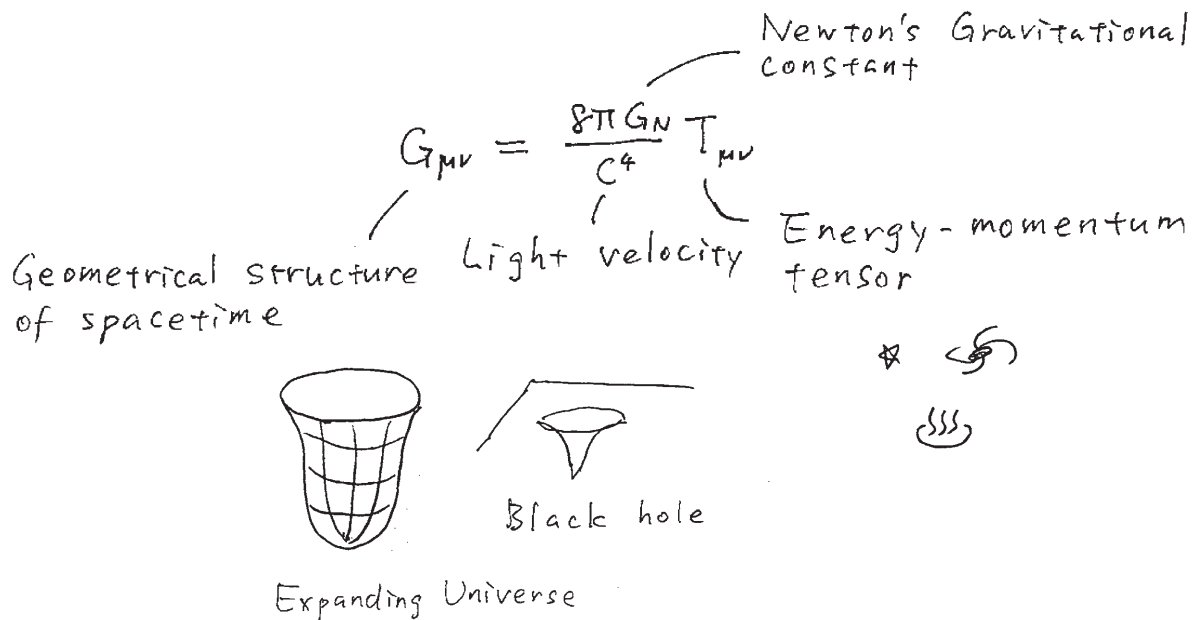 Newton's Gravitational
constant
Gμν = 8πG_N/C⁴ Tμν
Geometrical structure
of spacetime
Light velocity
Energy-momentum
tensor
Black hole
Expanding Universe